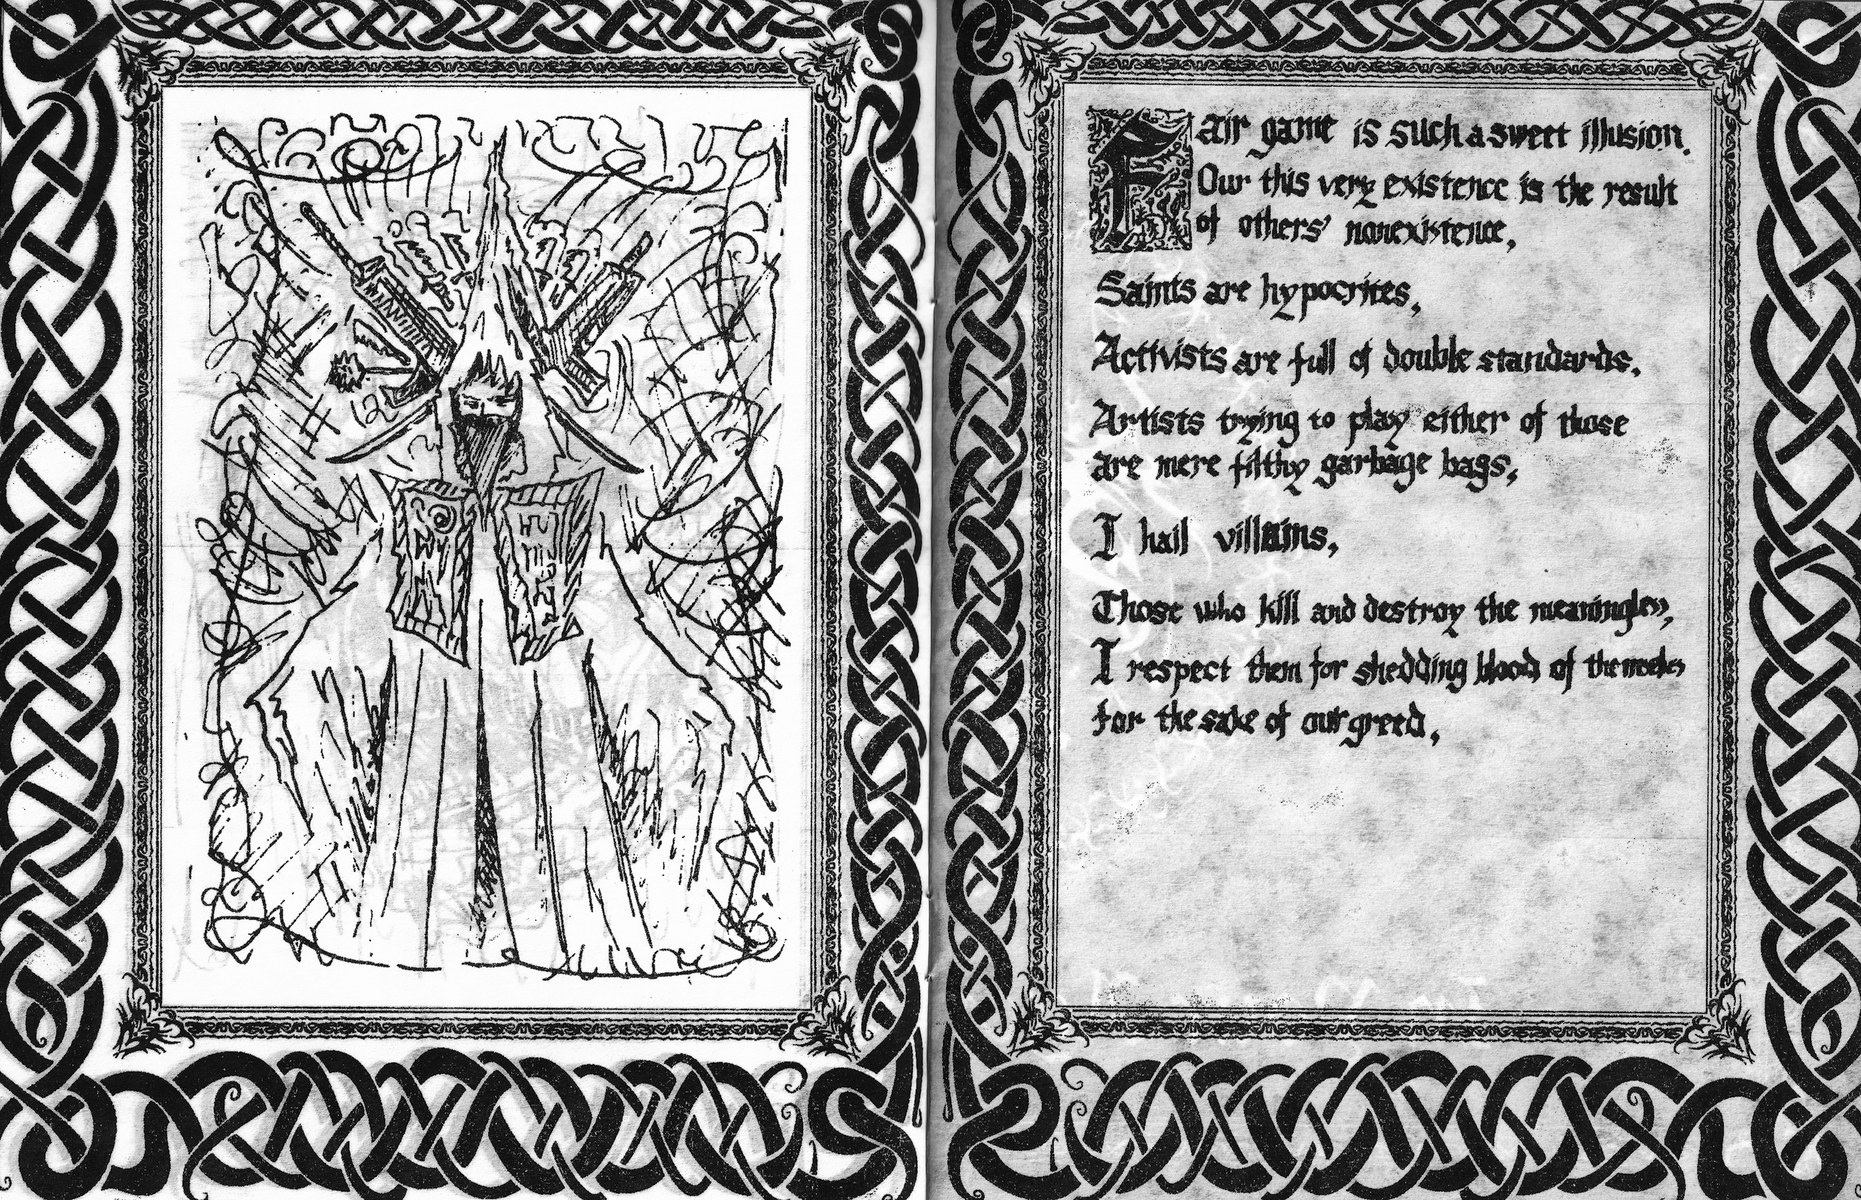 Fair game is such a sweet illusion.
Our this very existence is the result
of others' nonexistence,
Saints are hypocrites,
Activists are full of double standards,
Artists trying to play either of those
are mere filthy garbage bags,
I hail villains,
Those who kill and destroy the meaningless,
I respect them for shedding blood of
for the sake of our greed,